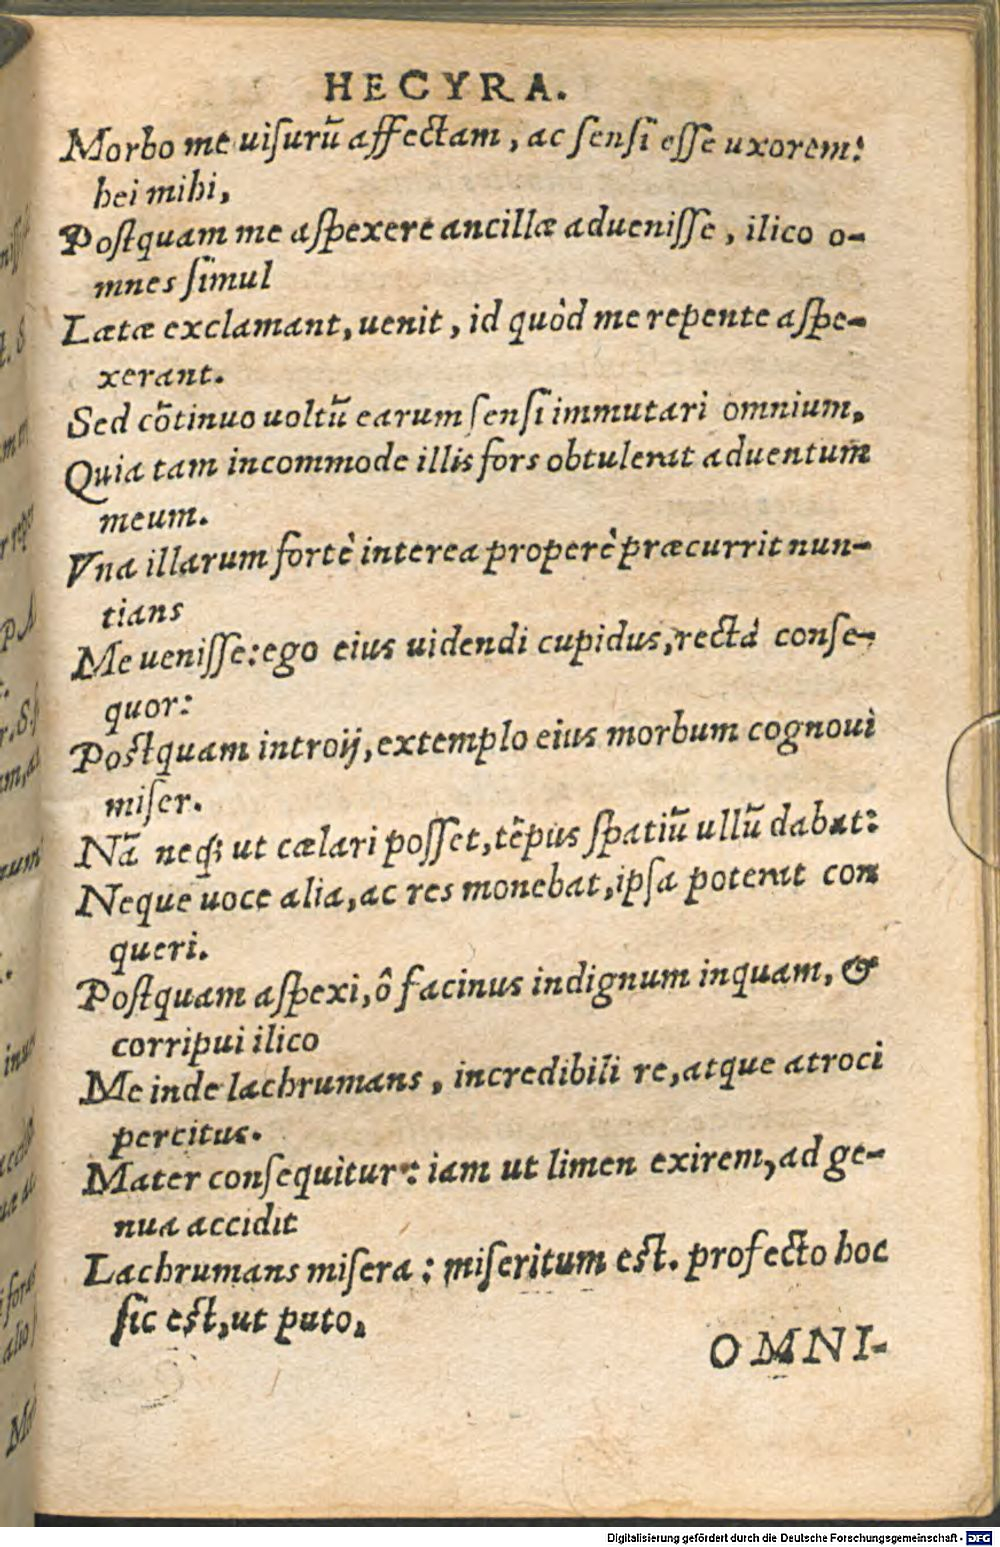 HECYRA.
Morbo me uiſurū affectam, ac ſenſi eſſe uxorem:
hei mihi,
Poſtquam me aſpexere ancillæ adueniſſe, ilico o-
mnes ſimul
Lætæ exclamant, uenit, id quòd me repente aſpe-
xerant.
Sed cõtinuo uoltū earum ſenſi immutari omnium,
Quia tam incommode illis fors obtulerat aduentum
meum.
Vna illarum fortè interea properè præcurrit nun-
tians
Me ueniſſe: ego eius uidendi cupidus, rectà conſe-
quor:
Poſtquam introij, extemplo eius morbum cognoui
miſer.
Nā neq; ut cælari poſſet, tẽpus ſpatiū ullū dabat:
Neque uoce alia, ac res monebat, ipſa poterat con
queri.
Poſtquam aſpexi, ô facinus indignum inquam, &
corripui ilico
Me inde lachrumans, incredibili re, atque atroci
percitus.
Mater conſequitur: iam ut limen exirem, ad ge-
nua accidit
Lachrumans miſera: miſeritum eſt. profecto hoc
ſic eſt, ut puto,
OMNI-
Digitalisierung gefördert durch die Deutsche Forschungsgemeinschaft - DFG